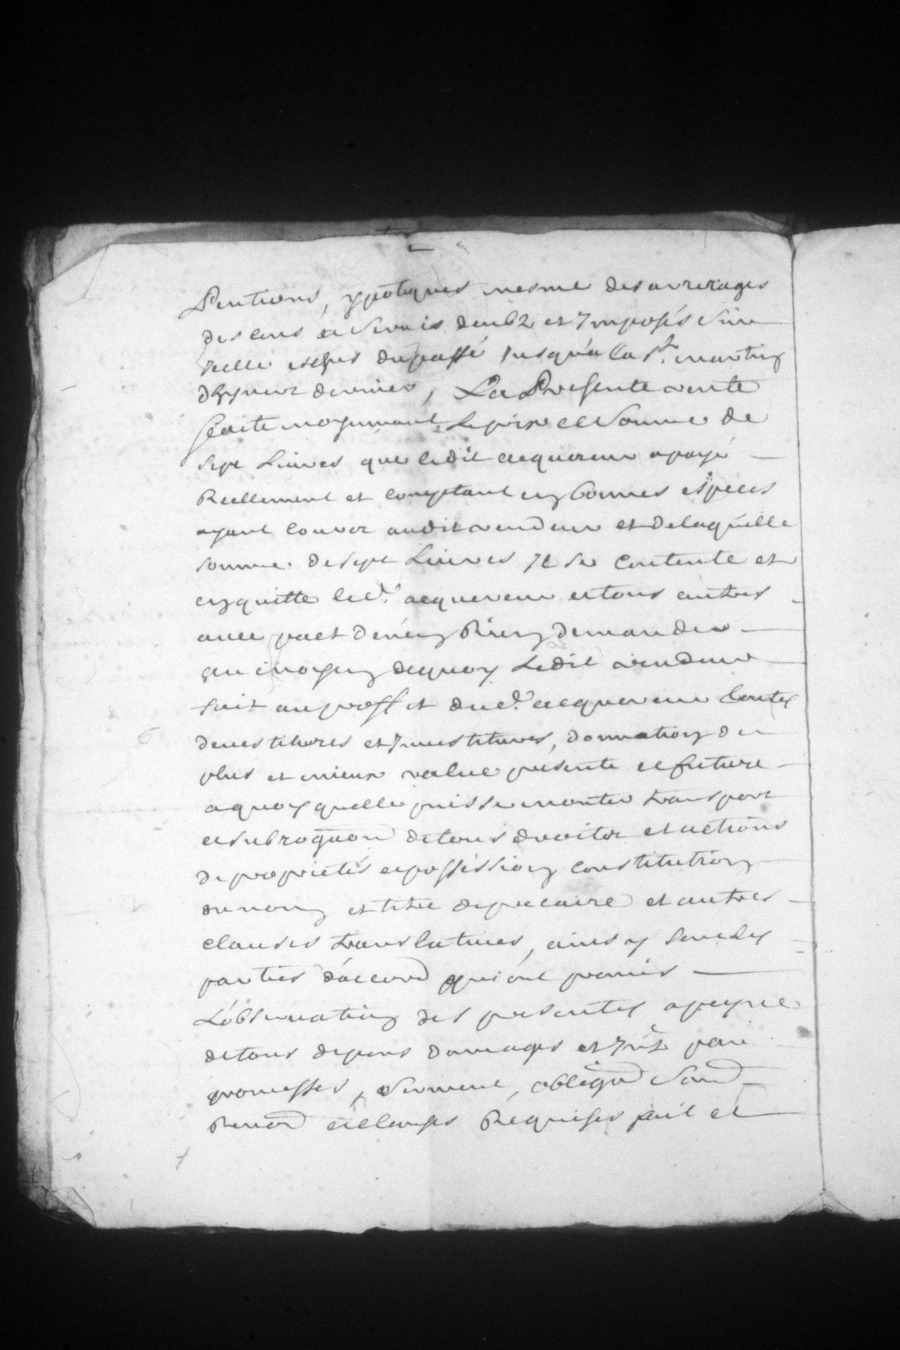 Pentions, ypoteques mesme des arrerages
des cens et servis deubz et Imposés sur
icelle eschus du passé Jusqu'a la St. martin
d'hyver dernier, La Presente vente
faite moyennant Le prix et somme de
sept Livres que ledit acquereur a payé
Reellement et comptant en bonnes especes
ayant cours audit vendeur et de laquelle
somme de sept Livres Il se contente et
en quitte led. acquereur et tous autres
avec pact de n'en Rien demander
au moyen dequoy Ledit vendeur
fait au proffit dud. acquereur toutes
devestitures et Investitures, donnation du
plus et mieux value presente et future
a quoy quelle puisse monter transport
et subrogaon de tous droits et actions
de proprietés et possession constitution
du nom et titre de precaire et autres
clauses translatives, ainsy sont les
parties d'accord qui ont promis
L'observation des presentes a peyne
de tous depens domages et Intts par
promesses, serment, obligaon
Renon et clauses Requises fait et